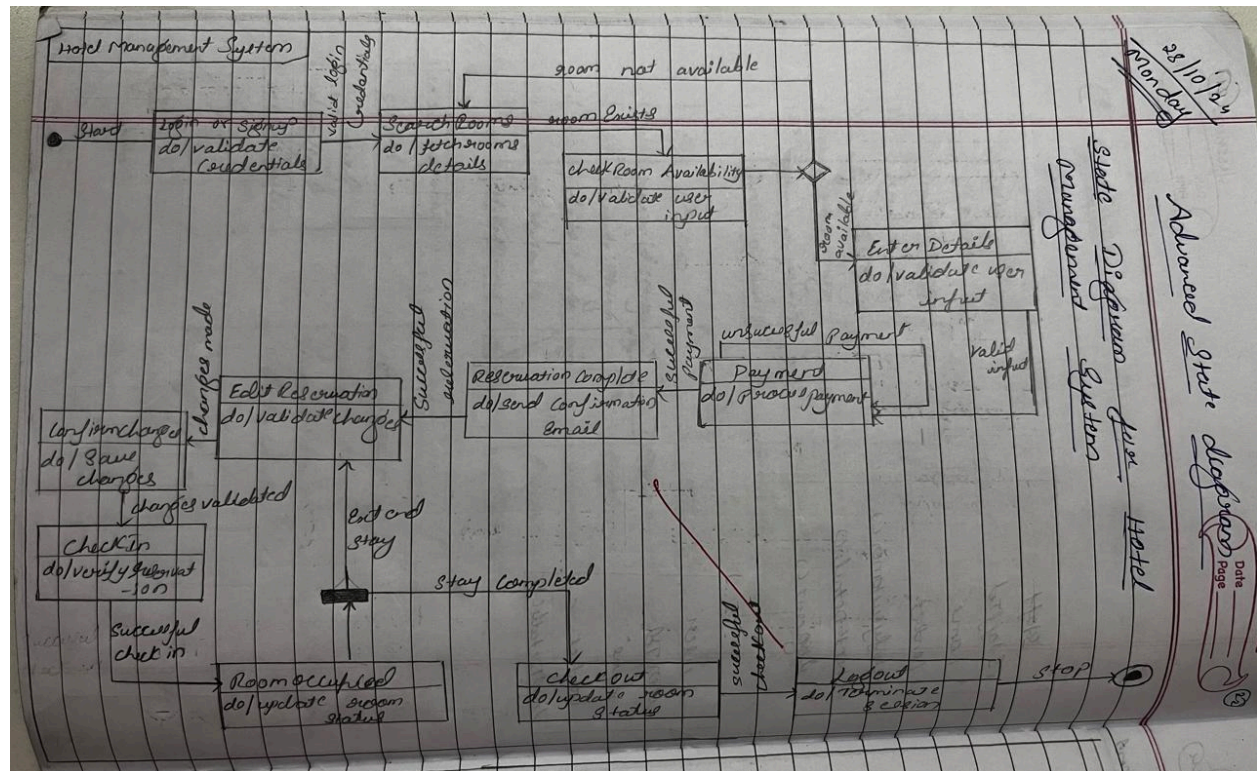 28/10/24
Monday
Advanced State diagram
State Diagram for Hotel
Management System
Date
Page
Hotel Management System
Start
Login or Signup
do/validate
Credentials
valid login
credentials
Search Rooms
do/fetch rooms
details
room not available
room Exists
check Room Availability
do/validate user
input
room
available
Enter Details
do/validate user
input
valid
input
unsuccessful Payment
Payment
do/Process payment
Successful
Payment
Reservation Complete
do/send Confirmation
Email
Successful
reservation
Edit Reservation
do/validate changes
changes made
Confirm changes
do/Save
changes
changes validated
Check In
do/verify reservat
-ion
Successful
check in
Room occupied
do/update room
status
Extend
stay
Stay Completed
Check out
do/update room
status
successful
checkout
Logout
do/Terminate
session
STOP